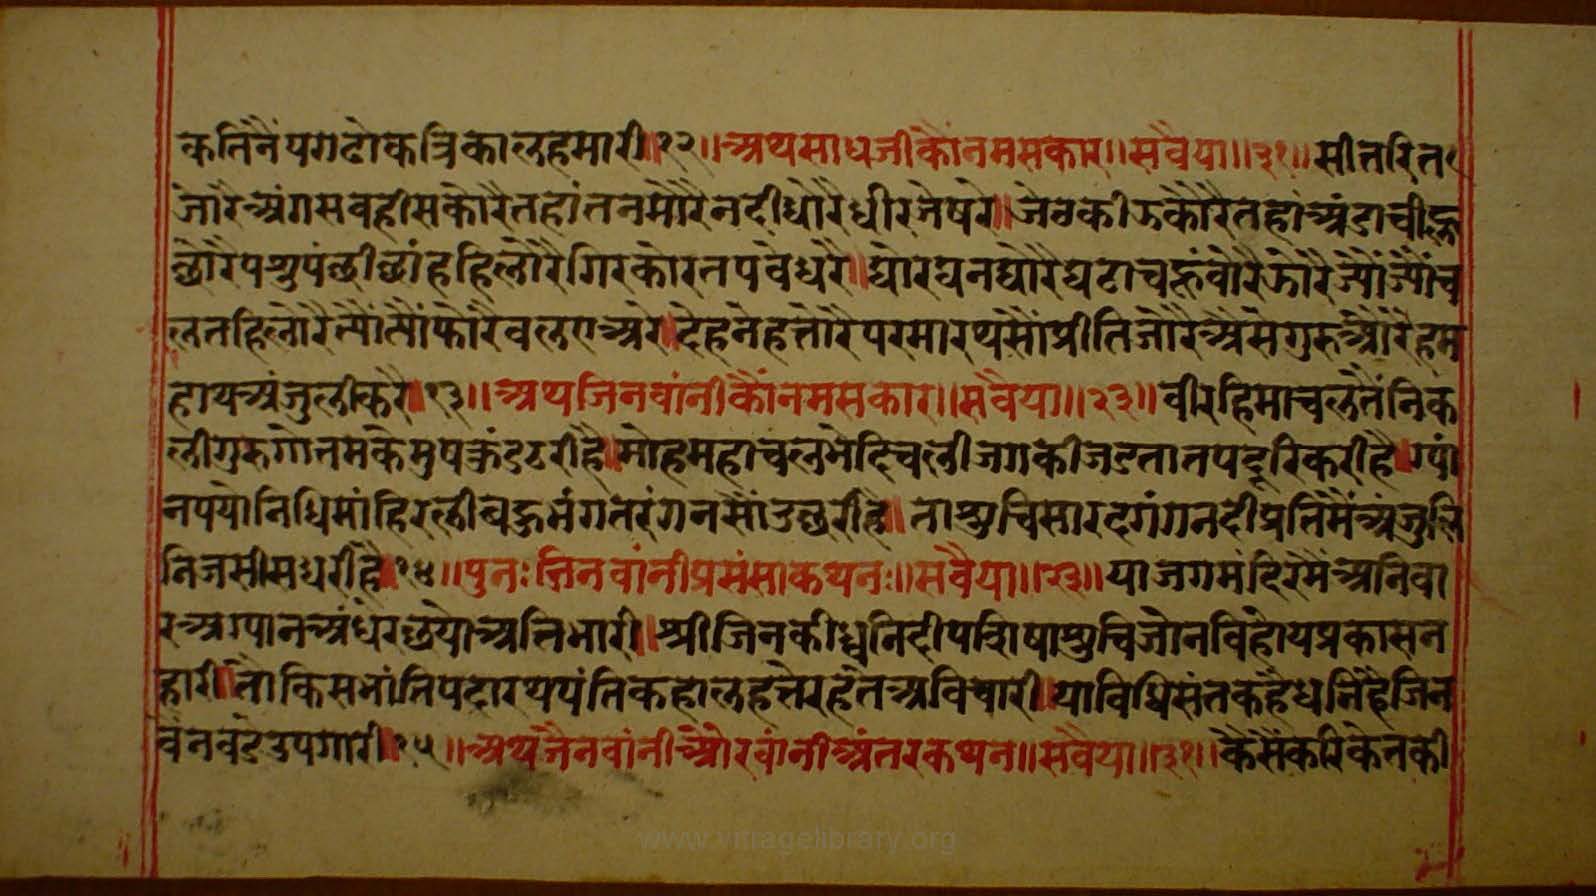 कतिनैंपगढोकत्रिकालहमारी॥१२॥अथसाधजीकौंनमसकार॥सवैया॥३१॥सीतरित
जोरैअंगसबहीसकोरैतहांतनमोरैनदीधोरैधीरजेषरे॥जेठकीझकोरैतहांअंडाचील्ह
छोरैपशुपंछीछांहहिलोरैगिरकोरतपवेधरै॥घोरघनघोरैघटाचहूंवोरैझोरैज्यौंज्यौंच
लतहिलोरैत्यौंत्यौंफोरैवलएअरे॥देहनेहतोरैपरमारथसौंप्रीतिजोरैअैसेगुरुओरैहम
हाथअंजुलीकरै॥१३॥अथजिनवांनीकौंनमसकार॥सवैया॥२३॥वीरहिमाचलतैंनिक
लीगुरुगोतमकेमुषकुंडढरीहै॥मोहमहाचलभेदिचलीजगकीजडतातपदूरिकरीहै॥ग्पां
नपयोनिधिमांहिरलीबहुभंगतरंगनसौंउछरीहै॥ताशुचिसारदगंगनदीप्रतिमैंअंजुलि
निजसीसधरीहै॥१४॥पुनःजिनवांनीप्रसंसाकथनः॥सवैया॥२३॥याजगमंदिरमैंअनिवा
रअग्पानअंधेरछयोअतिभारी॥श्रीजिनकीध्वनिदीपशिषाशुचिजोनविहोयप्रकासन
हारी॥तोकिसभांतिपदारथपंतिकहालहतेरहतेअविचारी॥याविधिसंतकहैधनिहैजिन
वेनवडेउपगारी॥१५॥अथजैनवांनीऔरवांनीअंतरकथन॥सवैया॥३१॥कैसैंकरिकेतकी
www.vitragelibrary.org